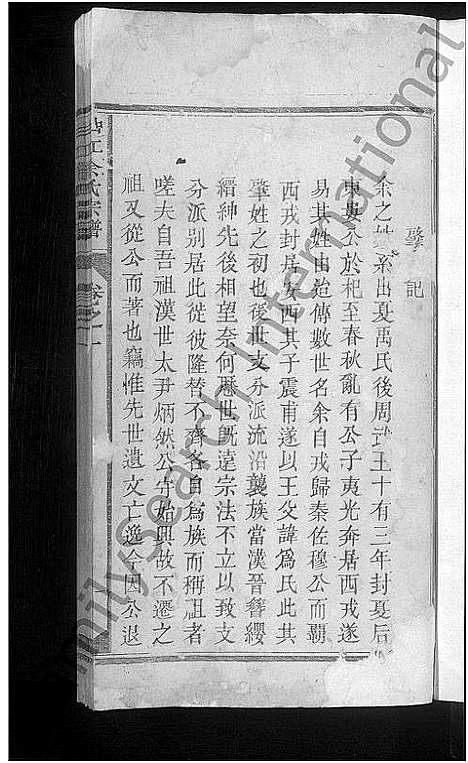 肇記
余之姓系出夏禹氏後周武王十有三年封夏后
東婁公於杞至春秋亂有公子夷光奔居西戎遂
易其姓由治傳數世名余自戎歸秦佐穆公而霸
西戎封居安西其子震甫遂以王父諱爲氏此其
肇姓之初也後世支分派流沿襲族當漢晉簪纓
縉紳先後相望奈何歷世既遠宗法不立以致文
分派别居此從彼隆替不齊各自爲族而稱祖者
嗟夫自吾祖漢世太尹炳然公守始興故不遷之
祖又從公而著也竊惟先世遺文亡逸今因公退
江余氏宗譜
卷之一
FamilySearch International